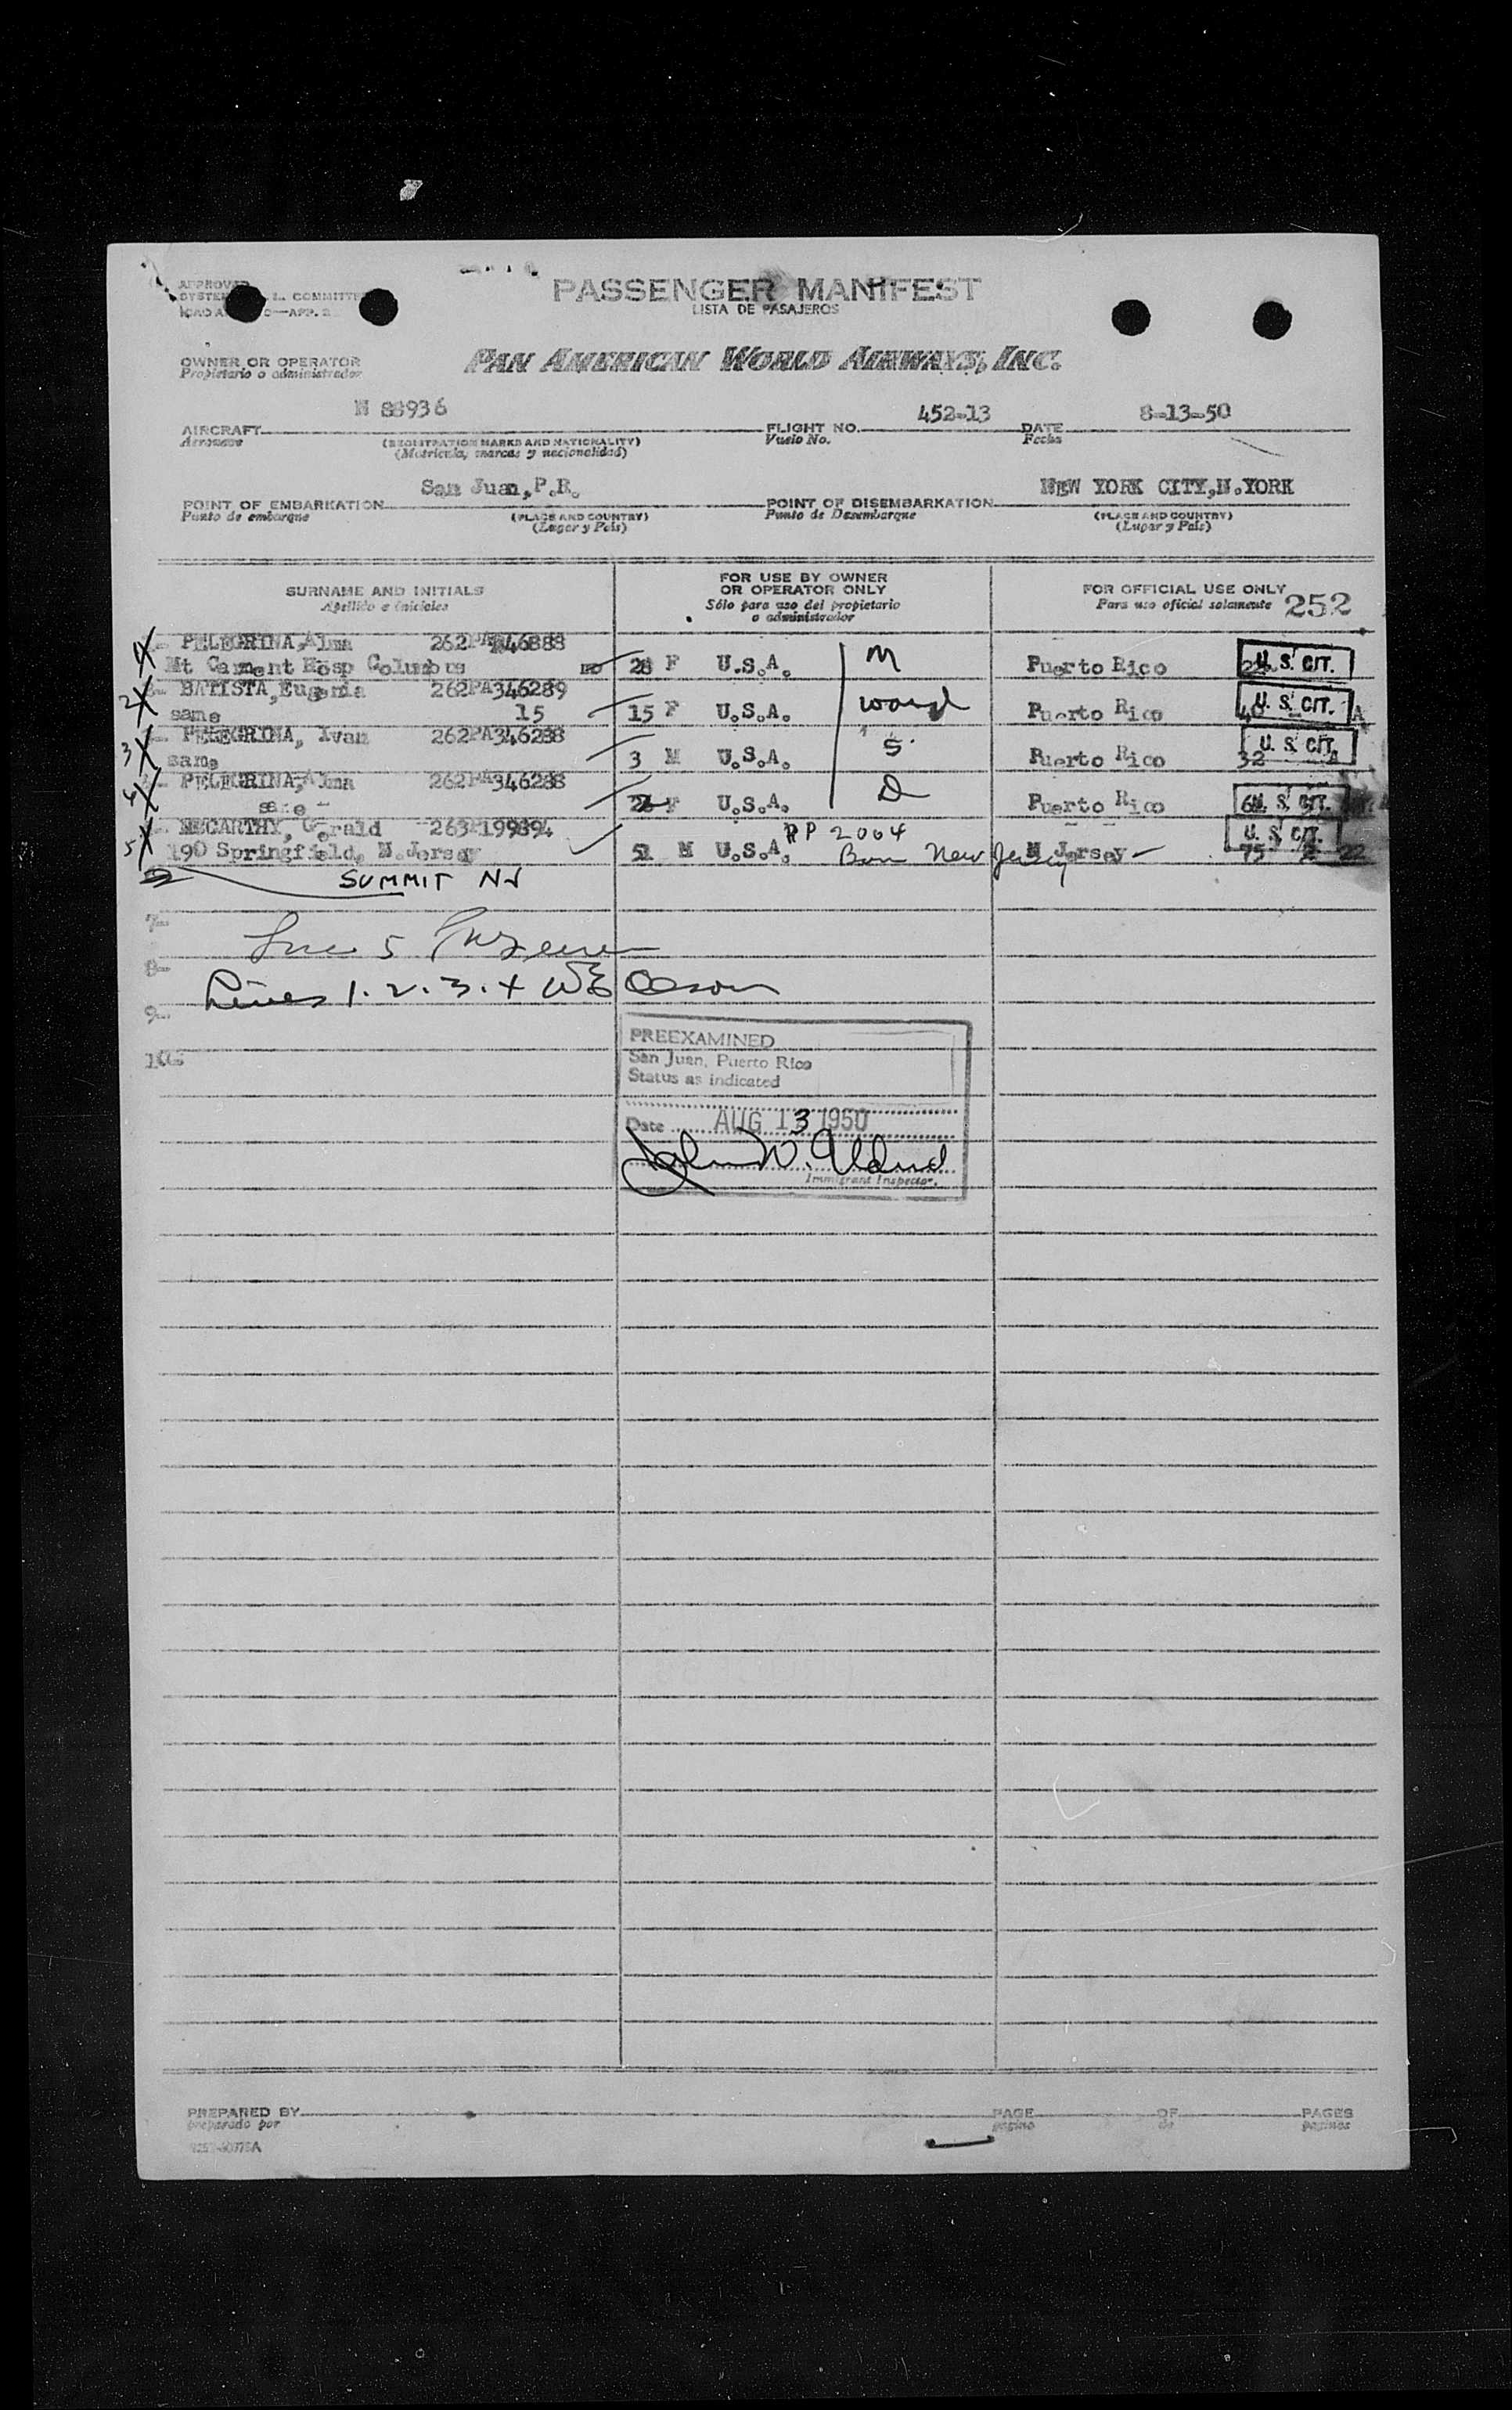 PASSENGER MANIFEST
LISTA DE PASAJEROS
APPROVED
COMMITTEE
OWNER OR OPERATOR
Propietario o administrador
PAN AMERICAN WORLD AIRWAYS, INC.
N 88936 452-13 8-13-50
AIRCRAFT FLIGHT NO. DATE
Aeronave (REGISTRATION MARKS AND NATIONALITY) Vuelo No. Fecha
(Matricula, marcas y nacionalidad)
San Juan, P.R. NEW YORK CITY, N.YORK
POINT OF EMBARKATION POINT OF DISEMBARKATION
Punto de embarque (PLACE AND COUNTRY) Punto de Desembarque (PLACE AND COUNTRY)
(Lugar y País) (Lugar y País)
SURNAME AND INITIALS FOR USE BY OWNER OR OPERATOR ONLY FOR OFFICIAL USE ONLY
Apellido e iniciales Sólo para uso del propietario o administrador Para uso oficial solamente 252
1 PELEGRINA, Alma
Mt Carment Hosp Columbus 28 F U.S.A. M Puerto Rico U.S. CIT.
2 BATISTA, Eugenia 262PA346289
same 15 15 F U.S.A. ward Puerto Rico U.S. CIT.
3 PELEGRINA, Ivan 262PA346288
same 3 M U.S.A. S Puerto Rico 32 U.S. CIT.
4 PELEGRINA, Alma 262PA346288
same F U.S.A. D Puerto Rico U.S. CIT.
5 MCCARTHY, Gerald PP 2004 U.S. CIT.
190 Springfield, N.Jersey 51 M U.S.A. Born New Jersey N Jersey 75 22
SUMMIT NJ
7-
8-
Lines 1. 2. 3. 4
9-
10-
PREEXAMINED
San Juan, Puerto Rico
Status as indicated
Date AUG 13 1950
John W.
Immigrant Inspector.
PREPARED BY PAGE OF PAGES
preparado por pagina de paginas